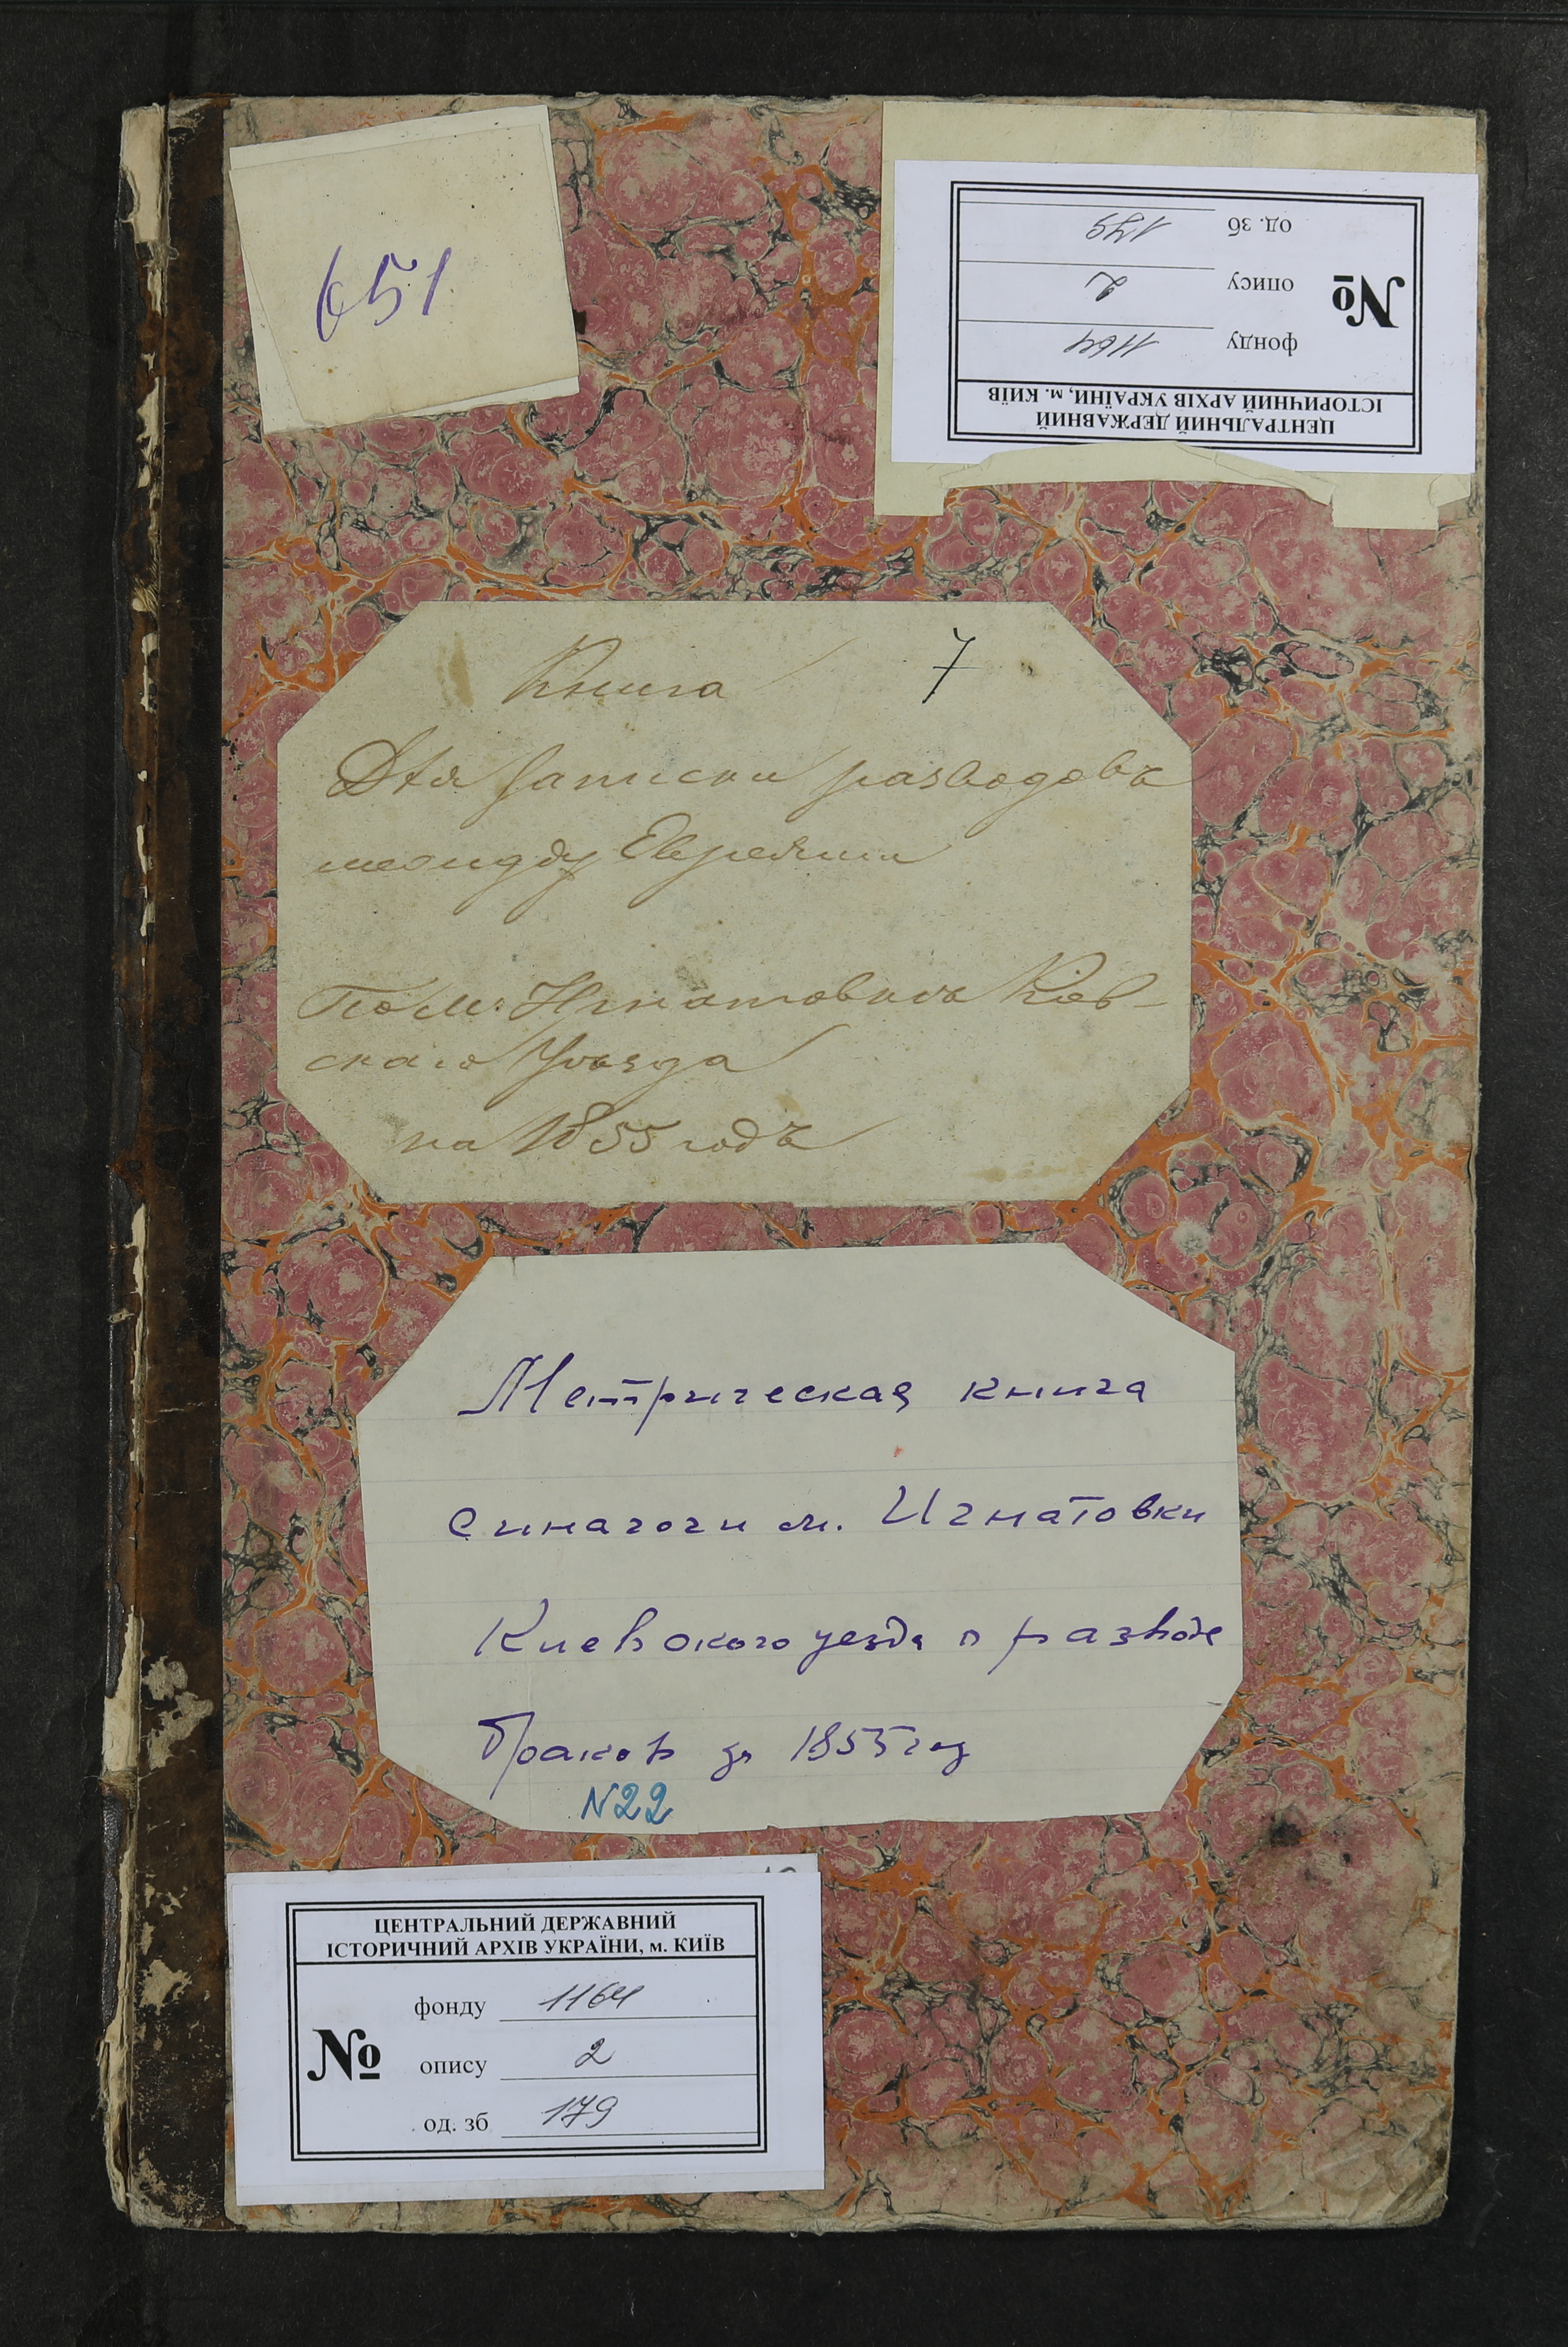 651
ЦЕНТРАЛЬНИЙ ДЕРЖАВНИЙ
ІСТОРИЧНИЙ АРХІВ УКРАЇНИ, м. КИЇВ
№
фонду 1164
опису 2
од. зб 179
Книга 7
Для записки разводовъ
между Евреями
По м: Игнатовке Киев-
скаго Уезда
на 1855 годъ
Метрическая книга
синагоги м. Игнатовки
Киевского уезда о разводе
браков за 1855 год
N22
ЦЕНТРАЛЬНИЙ ДЕРЖАВНИЙ
ІСТОРИЧНИЙ АРХІВ УКРАЇНИ, м. КИЇВ
№
фонду 1164
опису 2
од. зб 179